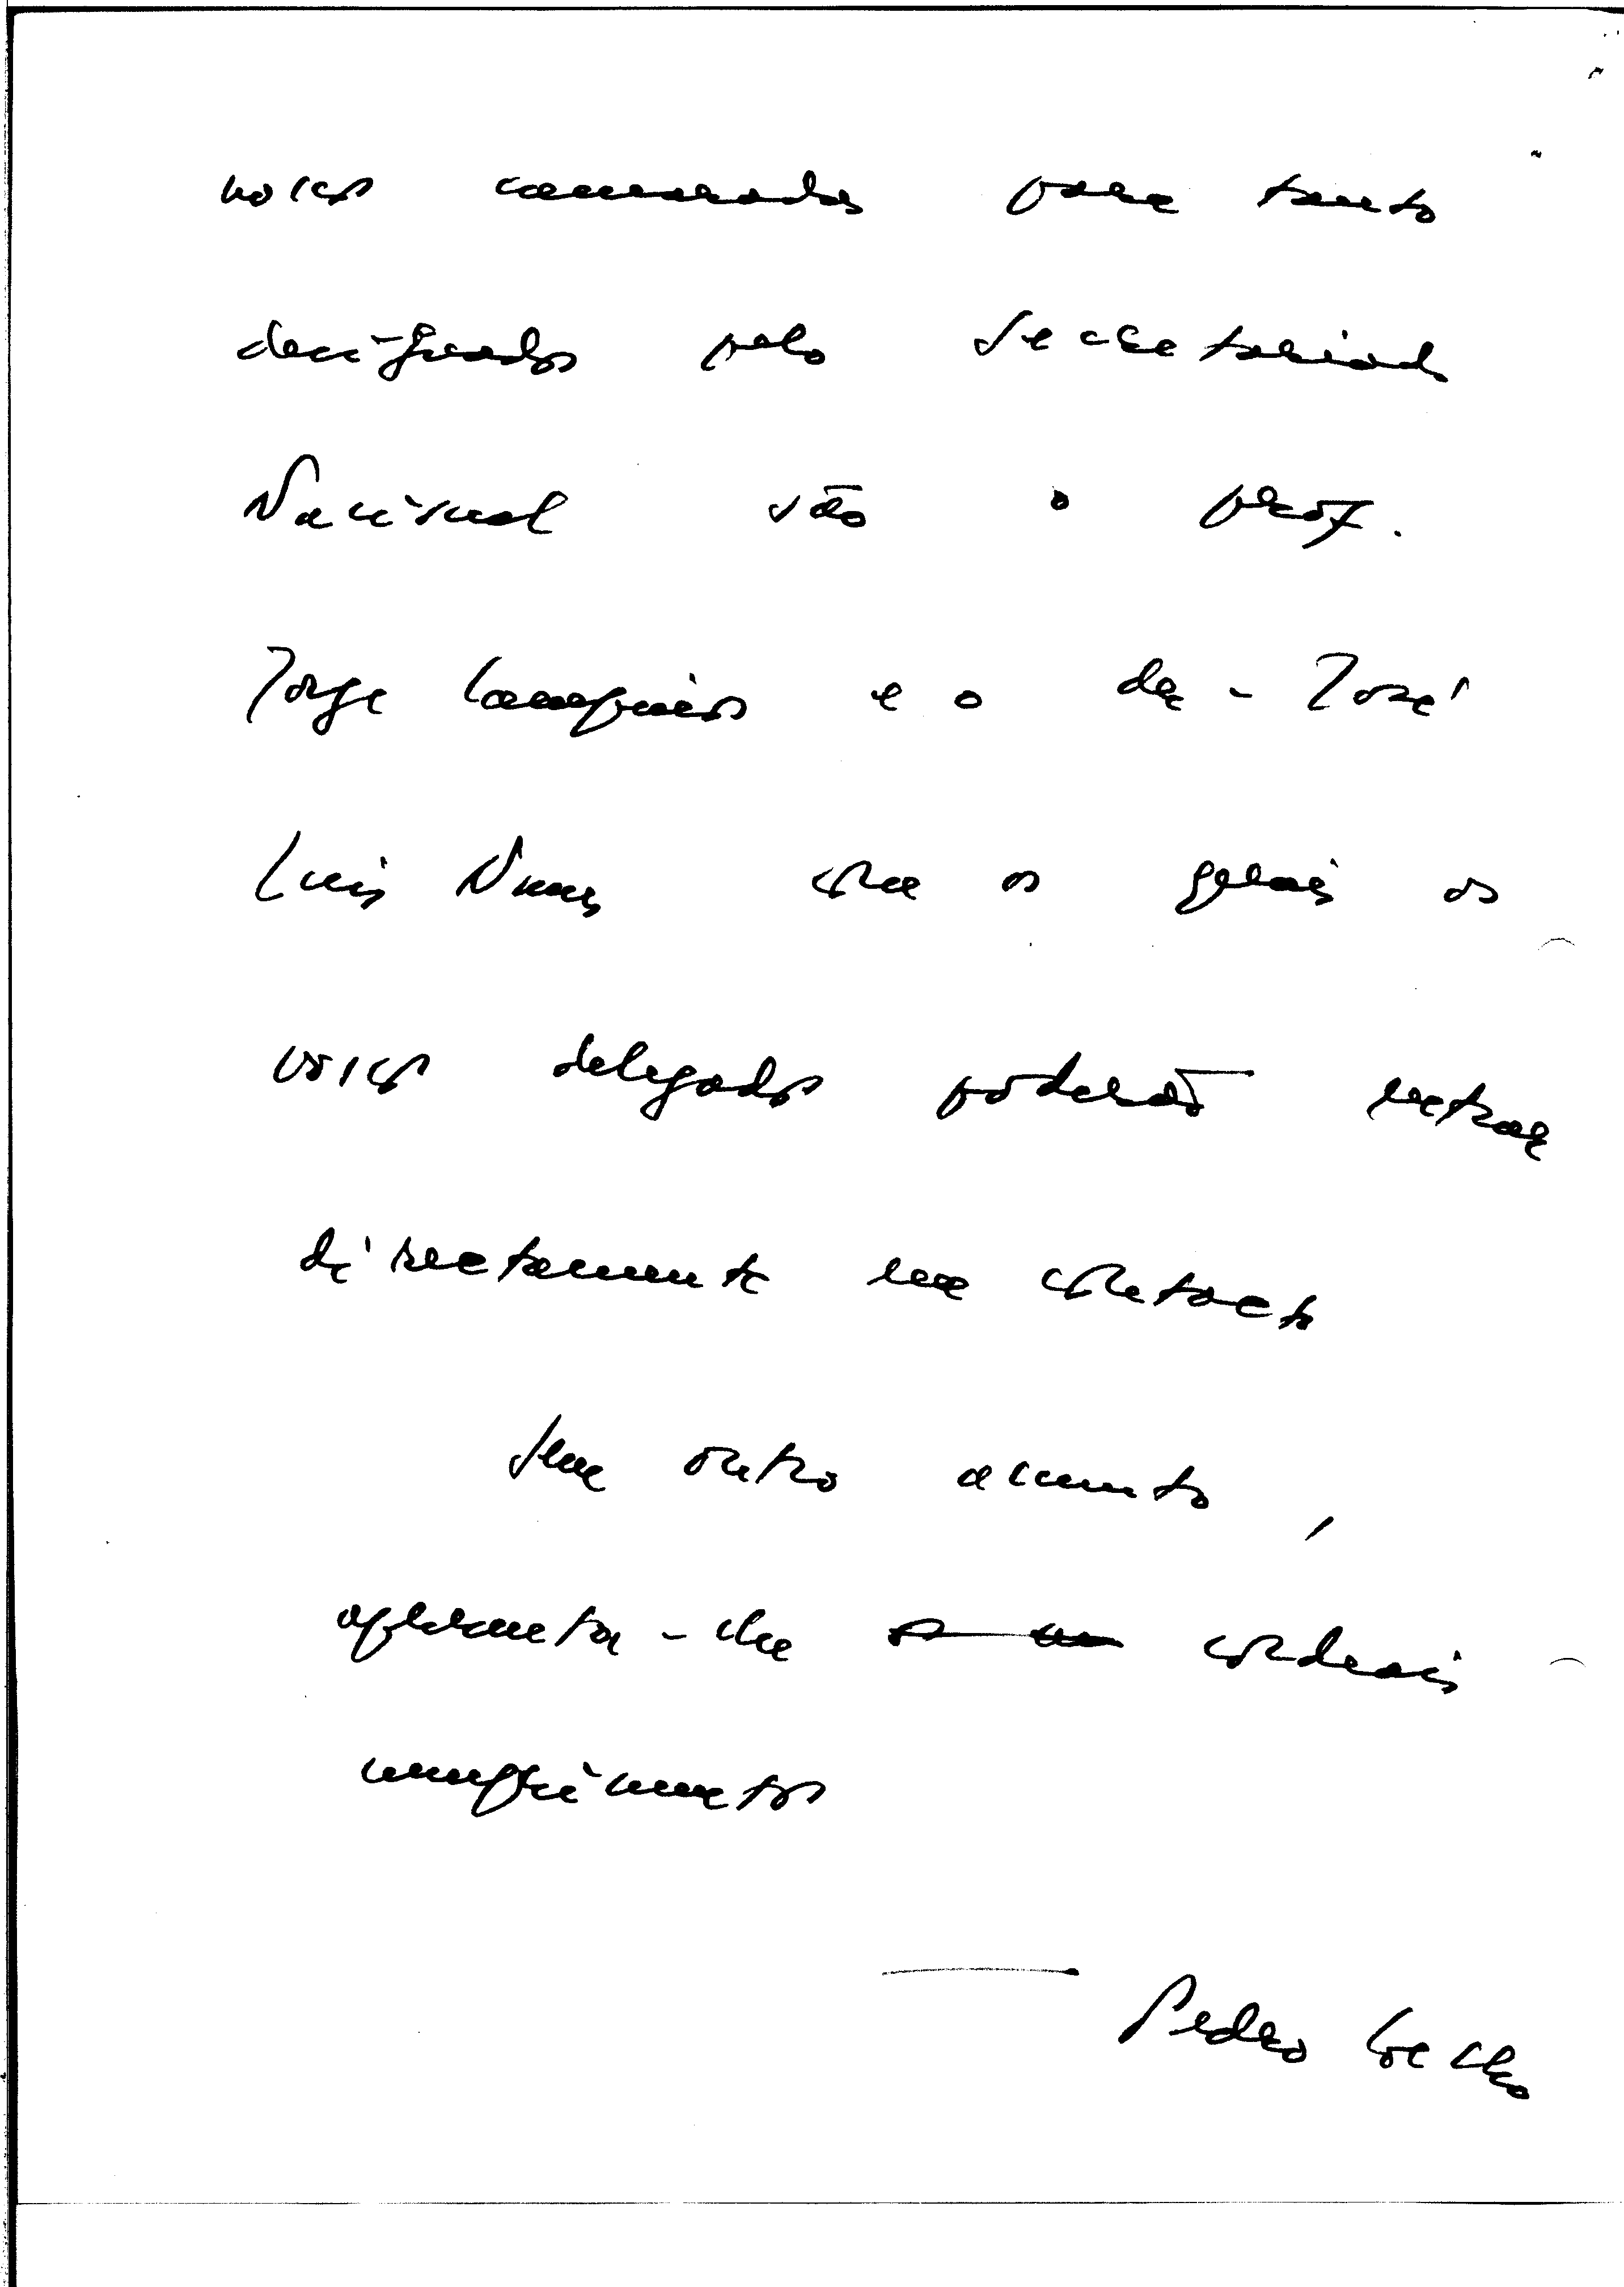 nossos camaradas para tanto
designados pelo Secretariado
Nacional são o prof.
Jorge Campinos e o dr. José
Luis Nunes com os quais os
vossos delegados poderão entrar
directamente em contacto
Sem outro assunto,
apresenta-lhe cordeais
cumprimentos
Pedro Coelho